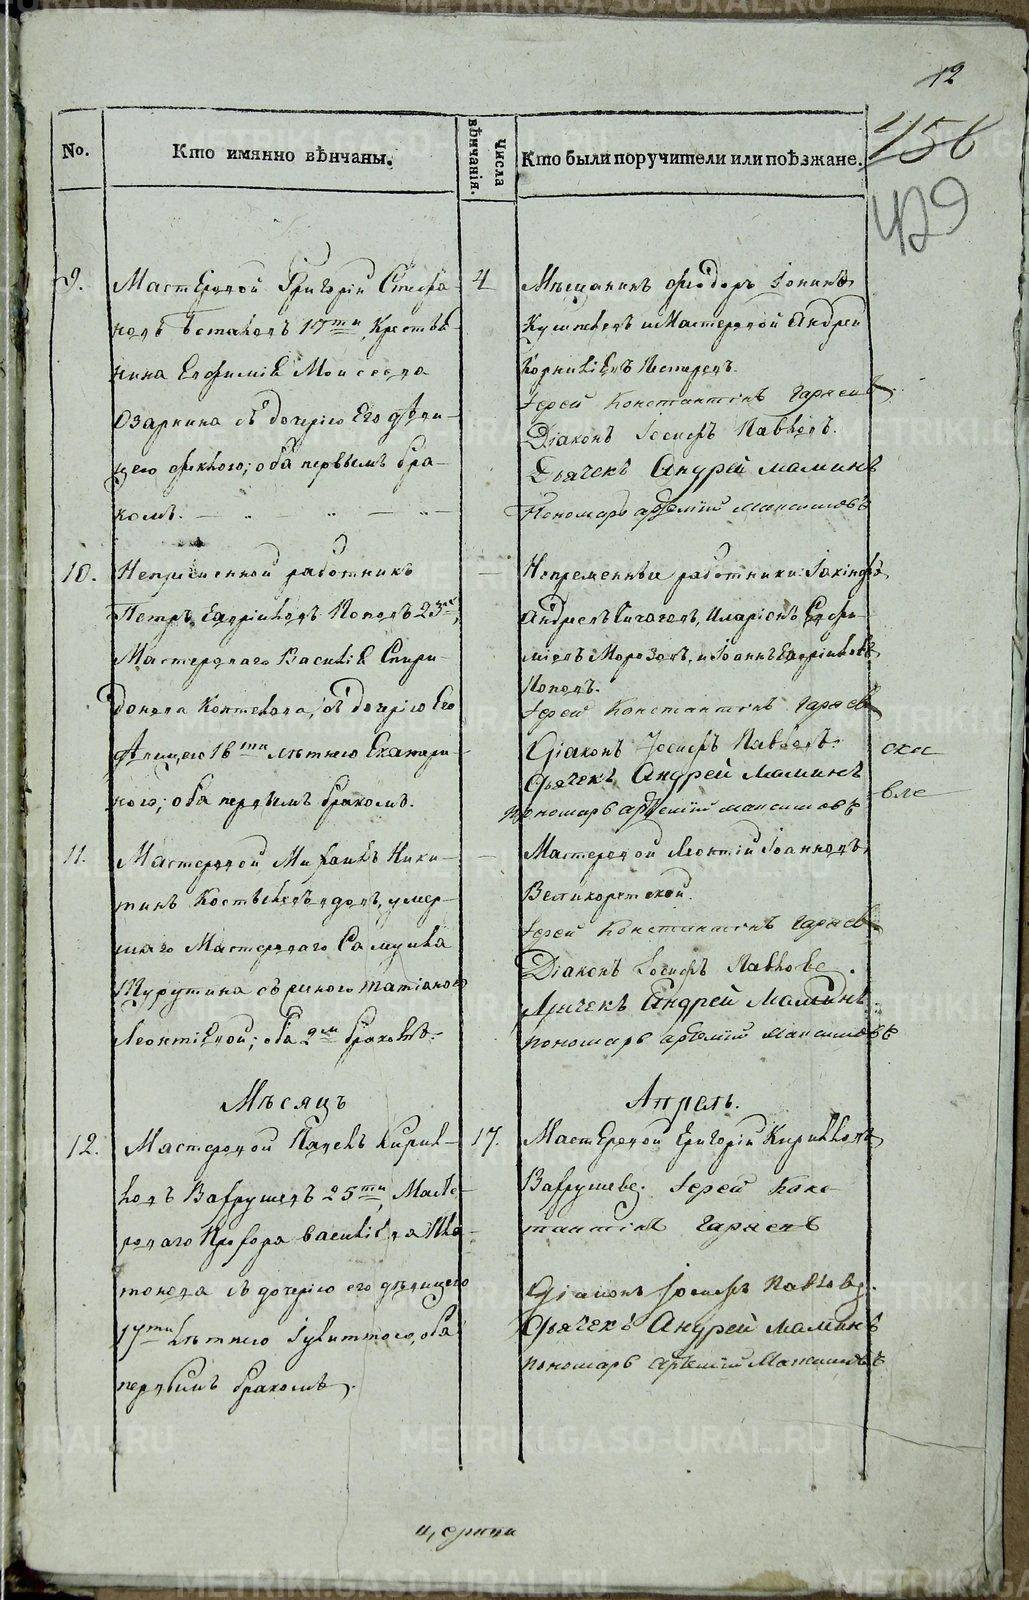 12
456
429
No.
Кто имянно вѣнчаны.
Числа вѣнчанія.
Кто были поручители или поѣзжане.
9.
Мастеровой Григорій Стефа-
новъ 17ти, Крестья-
нина Евфимія Моисеева
Озарнина съ дочерію Его дѣви-
цею; оба первымъ бра-
комъ.
4
Мѣщанинъ Ѳеодоръ Іонинъ
и Мастеровой Андрей
Корниліевъ Пестеревъ.
Іерей Константинъ Гаряевъ
Діаконъ Іосифъ Павловъ.
Дьячекъ Андрей Маминъ
Пономарь Артемій Максимовъ
10.
Непременной работникъ
Петръ Гавріиловъ Поповъ 23хъ,
Мастероваго Василія Спири-
донова Коптелова, съ дочерію Его
дѣвицею 16ти лѣтнею Екатери-
ною; оба первымъ бракомъ.
Непременныи работники: Іакинфъ
Андреевъ Чигагевъ, Иларіонъ Евфи-
міевъ Морозовъ, и Іоаннъ Гавріиловъ
Поповъ.
Іерей Константинъ Гаряевъ
Діаконъ Іосифъ Павловъ.
Дьячекъ Андрей Маминъ
пономарь Артемій Максимовъ
ска
вле
11.
Мастеровой Михаилъ Ники-
тинъ вдовъ, умер-
шаго Мастероваго Самуила
Шурутина съ женою Татіаною
Леонтіевой; оба 2мъ бракомъ.
Мастеровой Леонтій Іоанновъ
Великоретской.
Іерей Константинъ Гаряевъ
Діаконъ Іосифъ Павловъ.
Дьячекъ Андрей Маминъ.
пономарь Артемій Максимовъ
Мѣсяцъ
Апрель.
12.
Мастеровой Павелъ Кирил-
ловъ Вахрушевъ 25ти, Масте-
роваго Прохора Василіева Пла-
тонова съ дочерію его дѣвицею
17ти лѣтнею Іулиттою, оба
первымъ бракомъ.
17.
Мастеровой Григорій Кирилловъ
Вахрушевъ. Іерей Конс
тантинъ Гаряевъ
Діаконъ Іосифъ Павловъ.
Дьячекъ Андрей Маминъ
пономарь Артемій Максимовъ
церкви
METRIKI.GASO-URAL.RU